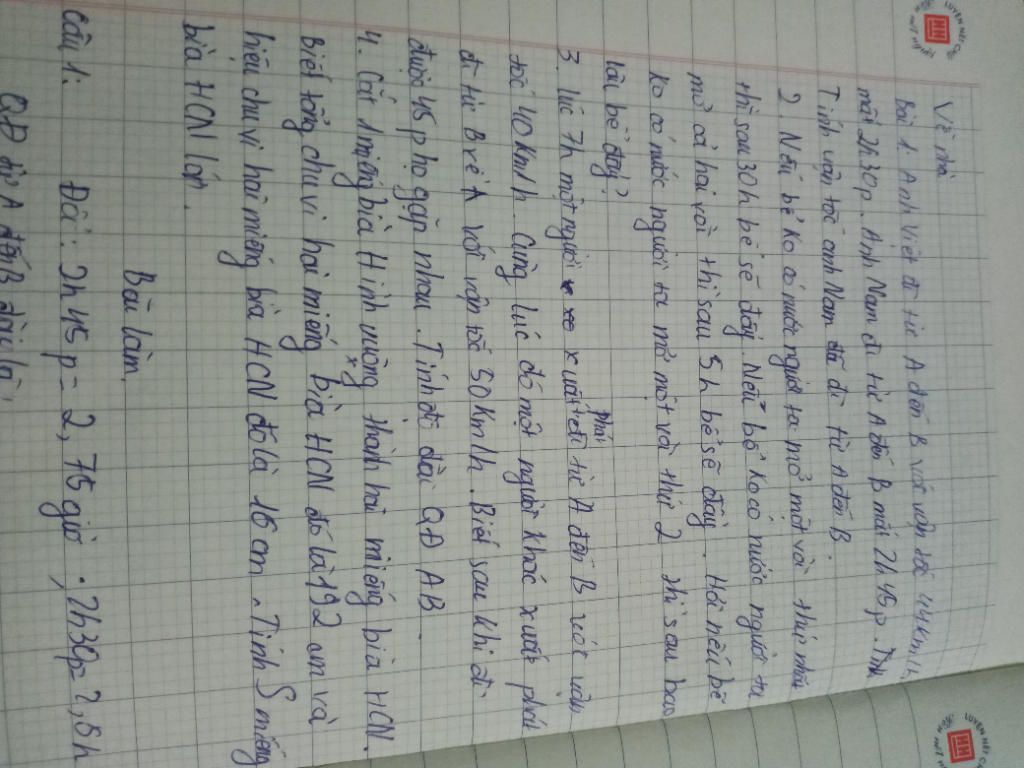 Về nhà
Bài 1. Anh Việt đi từ A đến B với vận tốc 44km/h,
mất 2h30p. Anh Nam đi từ A đến B mất 2h45p. Tính
Tính vận tốc anh Nam đã đi từ A đến B.
2. Nếu bể ko có nước người ta mở một vòi thứ nhất
thì sau 30h bể sẽ đầy. Nếu bể ko có nước người ta
mở cả hai vòi thì sau 5h bể sẽ đầy. Hỏi nếu bể
ko có nước người ta mở một vòi thứ 2 thì sau bao
lâu bể đầy?
3. Lúc 7h một người xuất phát đi từ A đến B với vận
tốc 40km/h. Cùng lúc đó một người khác xuất phát
đi từ B về A với vận tốc 50km/h. Biết sau khi đi
được 45p họ gặp nhau. Tính độ dài QĐ AB.
4. Cắt 1 miếng bìa Hình vuông thành hai miếng bìa HCN.
Biết tổng chu vi hai miếng bìa HCN đó là 192 cm và
hiệu chu vi hai miếng bìa HCN đó là 16 cm. Tính S miếng
bìa HCN lớn.
Bài làm.
Câu 1: Đổi: 2h45p = 2,75 giờ. 2h30p = 2,5h
QĐ từ A đến B dài là: